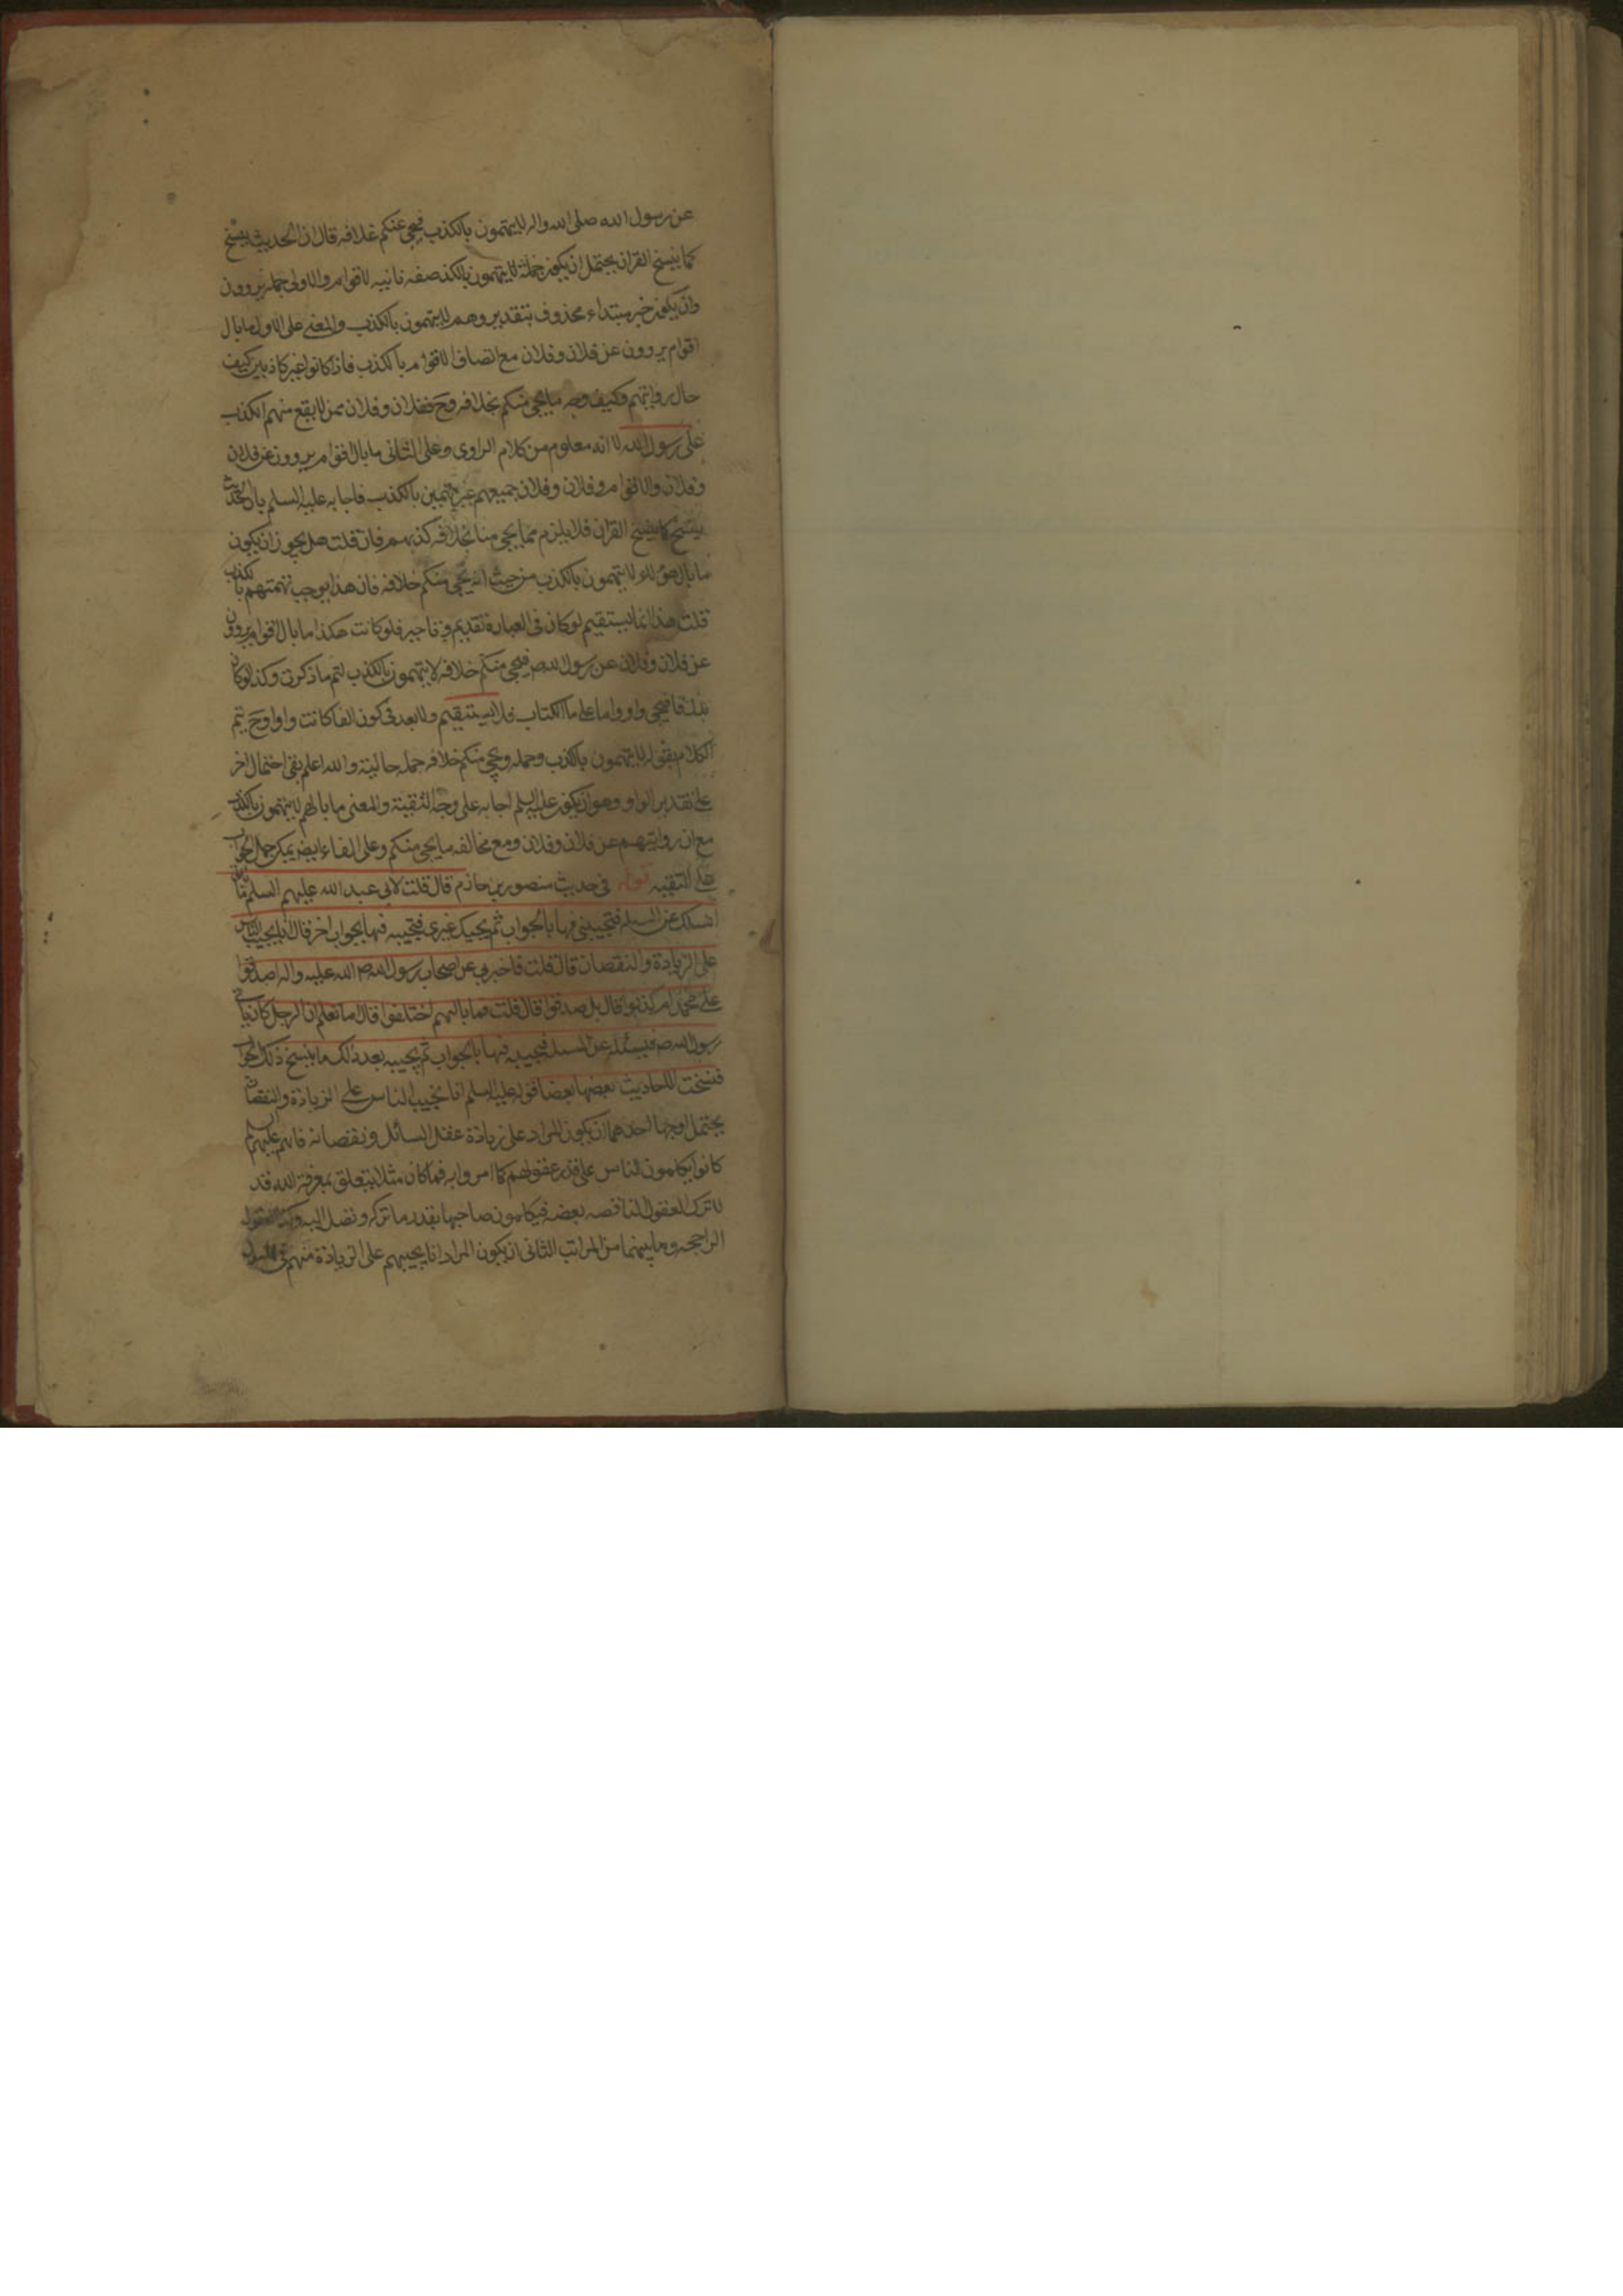 عن رسول الله صلى الله واله لا يتهمون بالكذب فيجئ عنكم خلافه قال ان الحديث ينسخ
كما ينسخ القران يحتمل ان يكون جملة لا يتهمون بالكذب صفه ثانيه لاقوام والاولى جمله يروون
وان يكون خبر مبتداء محذوف بتقدير وهم لا يتهمون بالكذب والمعنى على الاول ما بال
اقوام يروون عن فلان وفلان مع اتصاف الاقوام بالكذب فاذا كانوا غير كاذبين كيف
حال روايتهم وكيف وجه ما يجئ منكم بخلافه وح ففلان وفلان ممن لا يقع منهم الكذب
على رسول الله لا انه معلوم من كلام الراوى وعلى الثانى ما بال اقوام يروون عن فلان
وفلان والاقوام وفلان وفلان جميعهم غير متهمين بالكذب فاجابه عليه السلم بان الحديث
ينسخ كما ينسخ القران فلا يلزم مما يجئ منا بخلافه كذبهم فان قلت هل يجوز ان يكون
ما بال هؤلاء لا يتهمون بالكذب من حيث انه يجئ منكم خلافه فان هذا يوجب تهمتهم بالكذب
قلت هذا انما يستقيم لو كان فى العبارة تقديم وتاخير فلو كانت هكذا ما بال اقوام يروون
عن فلان وفلان عن رسول الله ص فيجئ منكم خلافه لا يتهمون بالكذب لتم ما ذكرت وكذا لو كان
بدل فا فيجئ واو واما على ما فى الكتاب فلا يستقيم ولا بعد فى كون الفا كانت واوا وح يتم
الكلام بقوله لا يتهمون بالكذب وجمله ويجئ منكم خلافه جمله حالية والله اعلم بقى احتمال اخر
على تقدير الواو وهو ان يكون عليه السلم اجابه على وجه التقية والمعنى ما بالهم لا يتهمون بالكذب
مع ان روايتهم عن فلان وفلان ومع مخالفه ما يجئ منكم وعلى الفاء ايضا يمكن حمل الجواب
على التقيه قوله فى حديث منصور بن حازم قال قلت لابى عبد الله عليهم السلم ما بالى
اسئلك عن المسله فتجيبنى فيها بالجواب ثم يجيئك غيرى فتجيبه فيها بجواب اخر فقال انا نجيب الناس
على الزيادة والنقصان قال قلت فاخبرنى عن اصحاب رسول الله ص الله عليه واله صدقوا
على محمد ام كذبوا قال بل صدقوا قال قلت فما بالهم اختلفوا قال اما تعلم ان الرجل كان ياتى
رسول الله ص فيسئله عن المسله فيجيبه فيها بالجواب ثم يجيبه بعد ذلك ما ينسخ ذلك الجواب
فنسخت الاحاديث بعضها بعضا قوله عليه السلم انا نجيب الناس على الزيادة والنقصان
يحتمل اوجها احدهما ان يكون المراد على زيادة عقل السائل ونقصانه فانهم عليهم السلم
كانوا يكلمون الناس على قدر عقولهم كما امروا به فما كان مثلا يتعلق بمعرفة الله قد
لا تدرك العقول الناقصه بعضه فيكلمون صاحبها بقدر ما تدركه وتصل اليه وكذا العقول
الراجحه وما بينهما من المراتب الثانى ان يكون المراد انا نجيبهم على الزيادة منهم فى السؤال